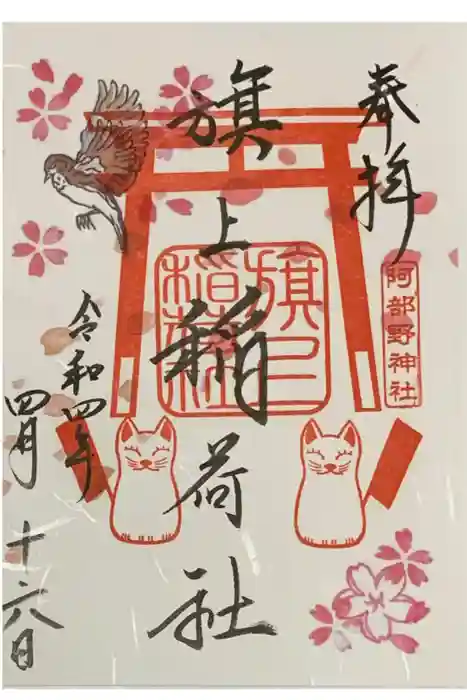 奉拝
阿部野神社
旗上稲荷社
旗上
稲荷社
令和四年
四月十六日